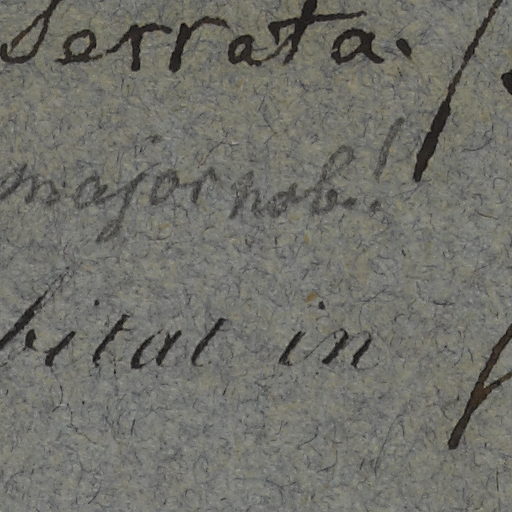 Serrata.
major nob.!
bitat in